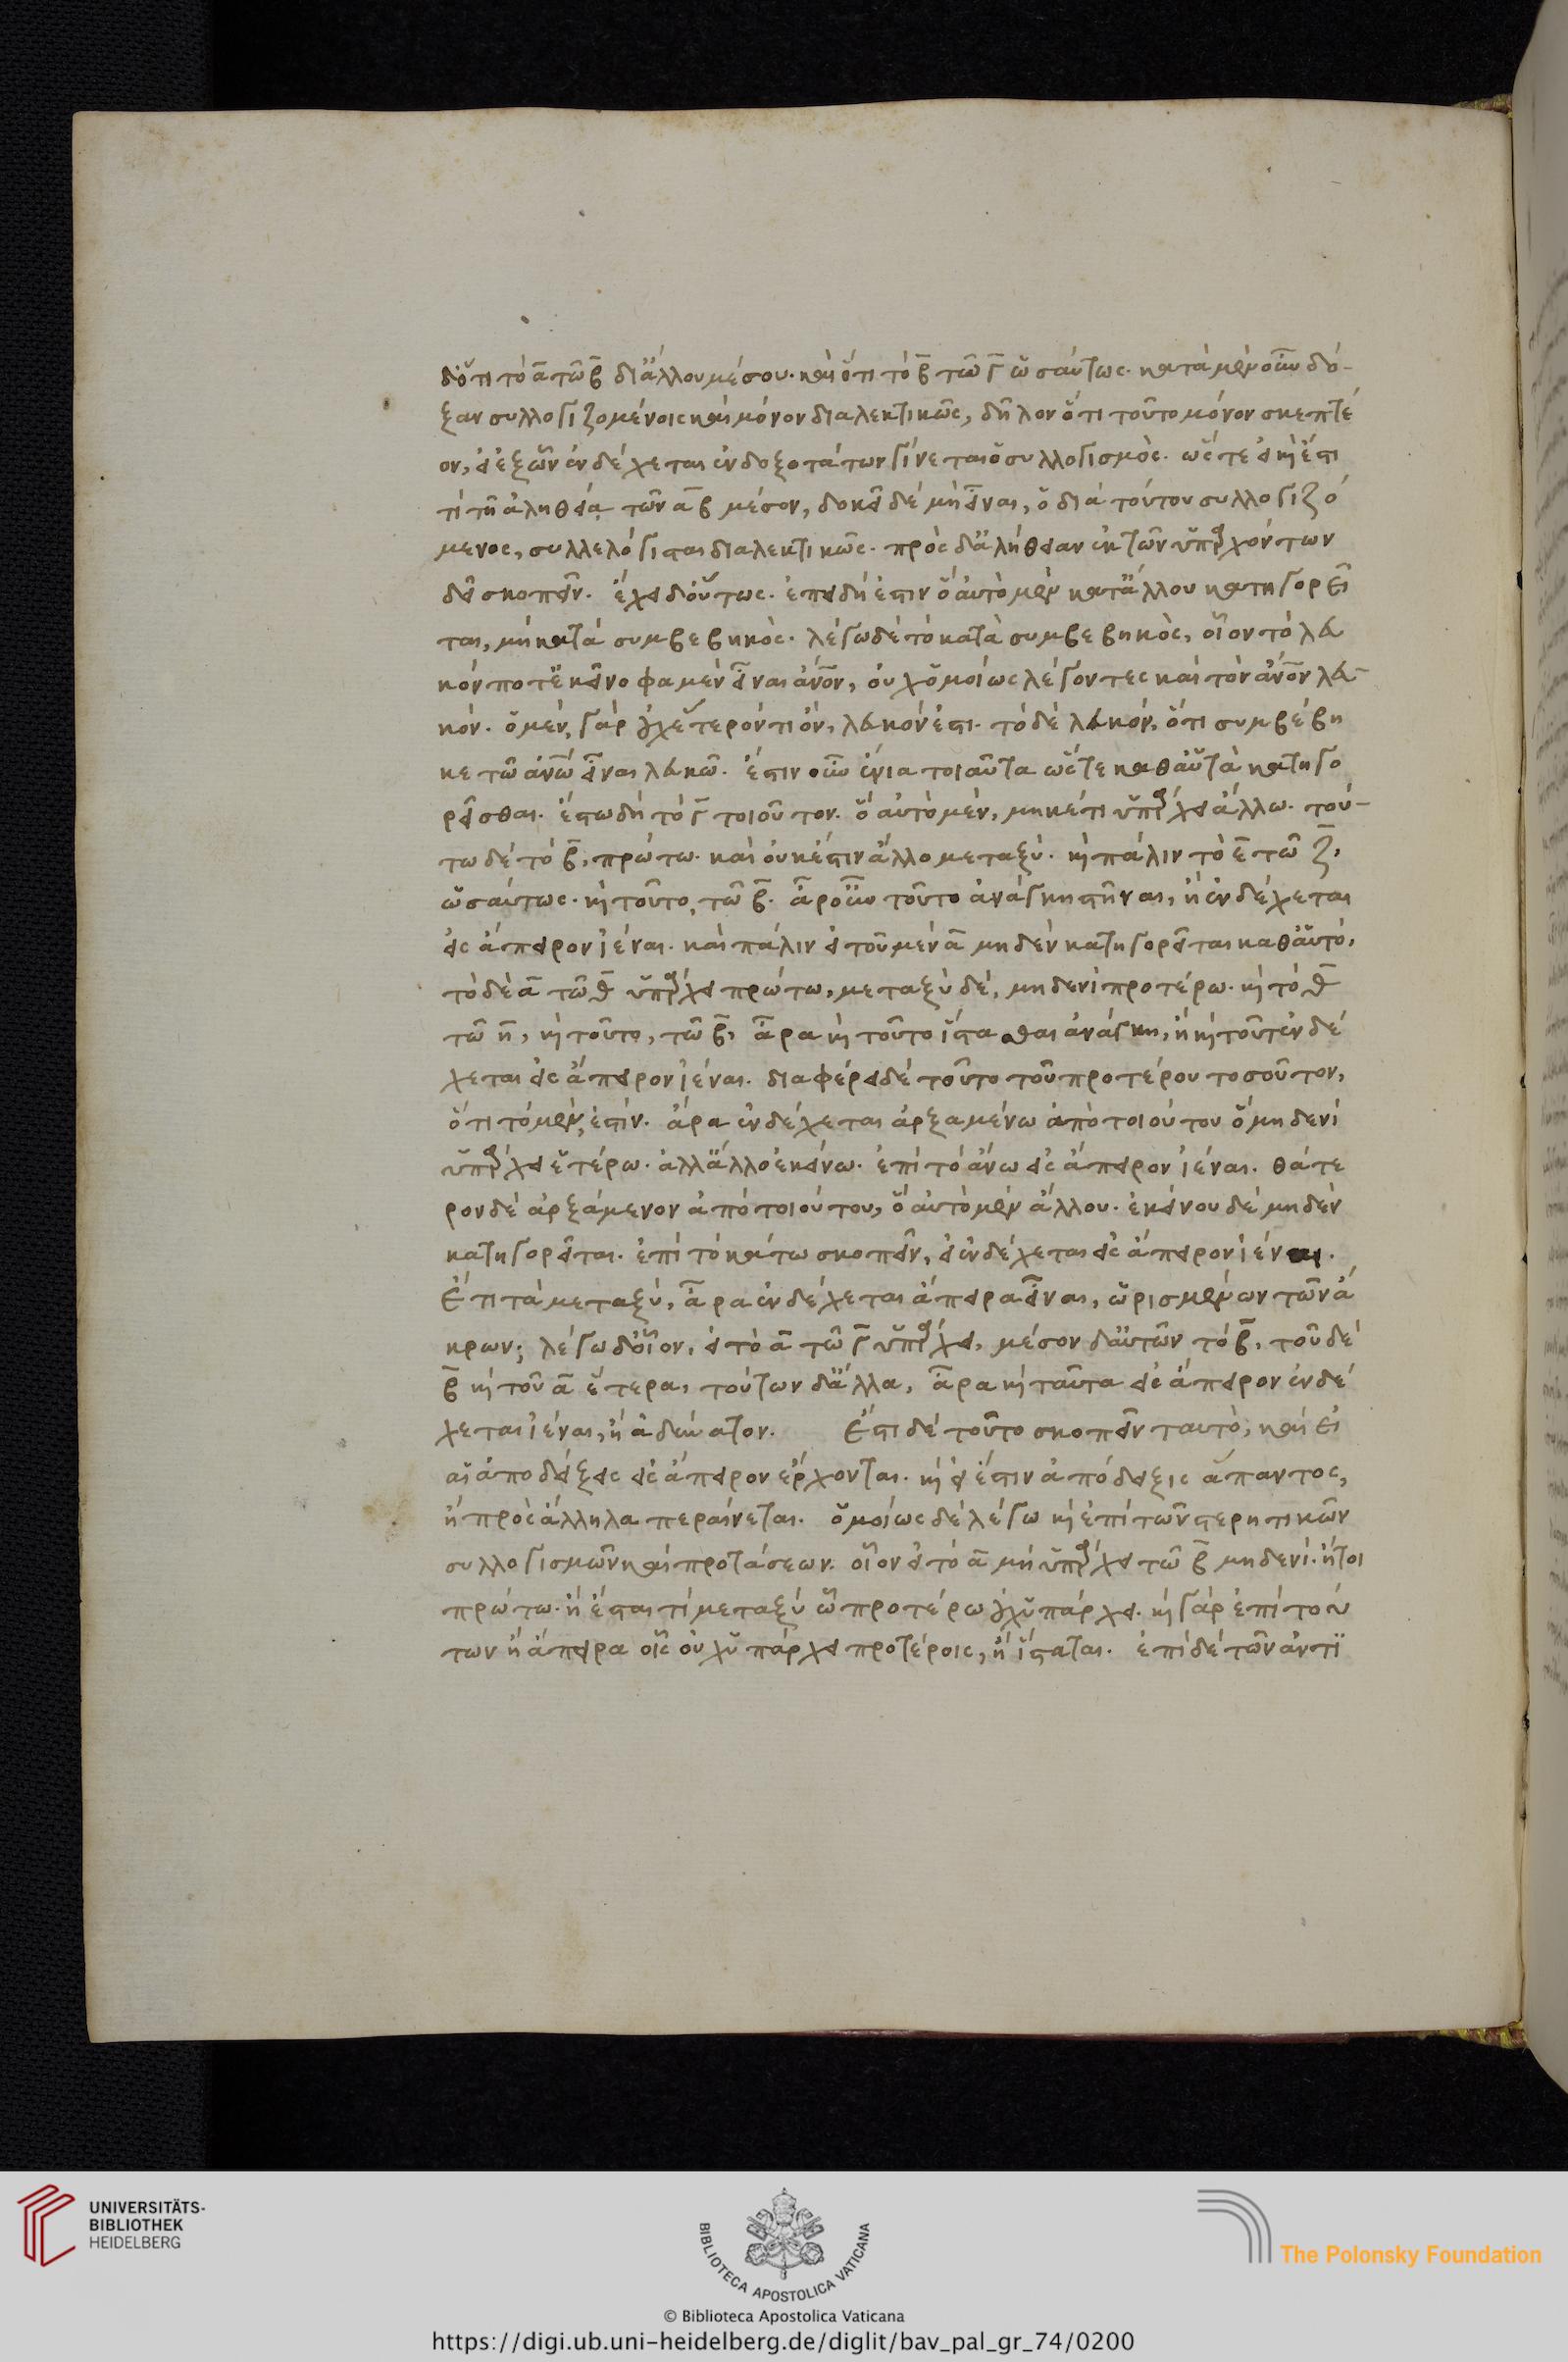 δ' ὅτι τὸ α τῶ β δι' ἄλλου μέσου. καὶ ὅτι τὸ β τῶ γ ὡσαύτως. κατὰ μὲν οὖν δό-
ξαν συλλογιζομένοις καὶ μόνον διαλεκτικῶς, δῆλον ὅτι τοῦτο μόνον σκεπτέ
ον, εἰ ἐξ ὧν ἐνδέχεται ἐνδοξοτάτων γίνεται ὁ συλλογισμὸς. ὥστε εἰ κὴ ἔστι
τί τῆ ἀληθεία τῶν α β μέσον, δοκεῖ δὲ μὴ εἶναι, ὁ διὰ τούτου συλλογιζό
μενος, συλλελόγισται διαλεκτικῶς. πρὸς δ' ἀλήθειαν ἐκ τῶν ὑπαρχόντων
δεῖ σκοπεῖν. ἔχει δ' οὕτως. ἐπειδὴ ἔστιν ὃ αὐτὸ μὲν κατ' ἄλλου κατηγορεῖ
ται, μὴ κατὰ συμβεβηκὸς. λέγω δὲ τὸ κατὰ συμβεβηκὸς, οἷον τὸ λευ
κόν ποτ' ἐκεῖνο φαμὲν εἶναι ἄνον, οὐχ ὁμοίως λέγοντες καὶ τὸν ἄνον λευ-
κόν. ὁ μὲν γὰρ οὐχ ἕτερόν τι ὂν, λευκόν ἐστι. τὸ δὲ λευκόν, ὅτι συμβέβη
κε τῶ ἀνω εἶναι λευκῶ. ἔστιν οὖν ἔνια τοιαῦτα ὥστε καθ' αὑτὰ κατηγο
ρεῖσθαι. ἔστω δὴ τὸ γ τοιοῦτον. ὃ αὐτὸ μὲν, μηκέτι ὑπάρχει ἄλλω. τού-
τω δὲ τὸ β, πρώτω. καὶ οὐκ ἔστιν ἄλλο μεταξύ. κὴ πάλιν τὸ ε τῶ ζ,
ὡσαύτως. κὴ τοῦτο, τῶ β. ἆρ' οὖν τοῦτο ἀνάγκη στῆναι, ἢ ἐνδέχεται
εἰς ἄπειρον ἰέναι. καὶ πάλιν εἰ τοῦ μὲν α μηδὲν κατηγορεῖται καθ' αὑτό,
τὸ δὲ α τῶ θ ὑπάρχει πρώτω, μεταξὺ δὲ, μηδενὶ προτέρω. κὴ τὸ θ
τῶ η, κὴ τοῦτο, τῶ β, ἆρα κὴ τοῦτο ἵστασθαι ἀνάγκη, ἢ κὴ τοῦτ' ἐνδέ
χεται εἰς ἄπειρον ἰέναι. διαφέρει δὲ τοῦτο τοῦ προτέρου τοσοῦτον,
ὅτι τὸ μέν, ἐστίν. ἆρα ἐνδέχεται ἀρξαμένω ἀπὸ τοιούτου ὃ μηδενὶ
ὑπάρχει ἑτέρω. ἀλλ' ἄλλο ἐκείνω. ἐπὶ τὸ ἄνω εἰς ἄπειρον ἰέναι. θάτε
ρον δὲ ἀρξάμενον ἀπὸ τοιούτου, ὃ αὐτὸ μὲν ἄλλου. ἐκείνου δὲ μηδὲν
κατηγορεῖται. ἐπὶ τὸ κάτω σκοπεῖν, εἰ ἐνδέχεται εἰς ἄπειρον ἰέναι.
Ἔτι τὰ μεταξύ, ἆρα ἐνδέχεται ἄπειρα εἶναι, ὡρισμένων τῶν ἄ
κρων; λέγω δ' οἷον, εἰ τὸ α τῶ γ ὑπάρχει, μέσον δ' αὐτῶν τὸ β, τοῦ δὲ
β κὴ τοῦ α ἕτερα, τούτων δ' ἄλλα, ἆρα κὴ ταῦτα εἰς ἄπειρον ἐνδέ
χεται ἰέναι, ἢ ἀδύνατον. Ἔστι δὲ τοῦτο σκοπεῖν ταυτὸ, καὶ εἰ
αἱ ἀποδείξεις εἰς ἄπειρον ἔρχονται. κὴ εἰ ἔστιν ἀπόδειξις ἅπαντος,
ἢ πρὸς ἄλληλα περαίνεται. ὁμοίως δὲ λέγω κὴ ἐπὶ τῶν στερητικῶν
συλλογισμῶν καὶ προτάσεων. οἷον εἰ τὸ α μὴ ὑπάρχει τῶ β μηδενί. ἤτοι
πρώτω. ἢ ἔσται τί μεταξύ ὧ προτέρω οὐχ ὑπάρχει. κὴ γὰρ ἐπὶ τού
των ἢ ἄπειρα οἷς οὐχ ὑπάρχει προτέροις, ἢ ἵσταται. ἐπὶ δὲ τῶν ἀντι
UNIVERSITÄTS-
BIBLIOTHEK
HEIDELBERG
BIBLIOTECA APOSTOLICA VATICANA
The Polonsky Foundation
© Biblioteca Apostolica Vaticana
https://digi.ub.uni-heidelberg.de/diglit/bav_pal_gr_74/0200